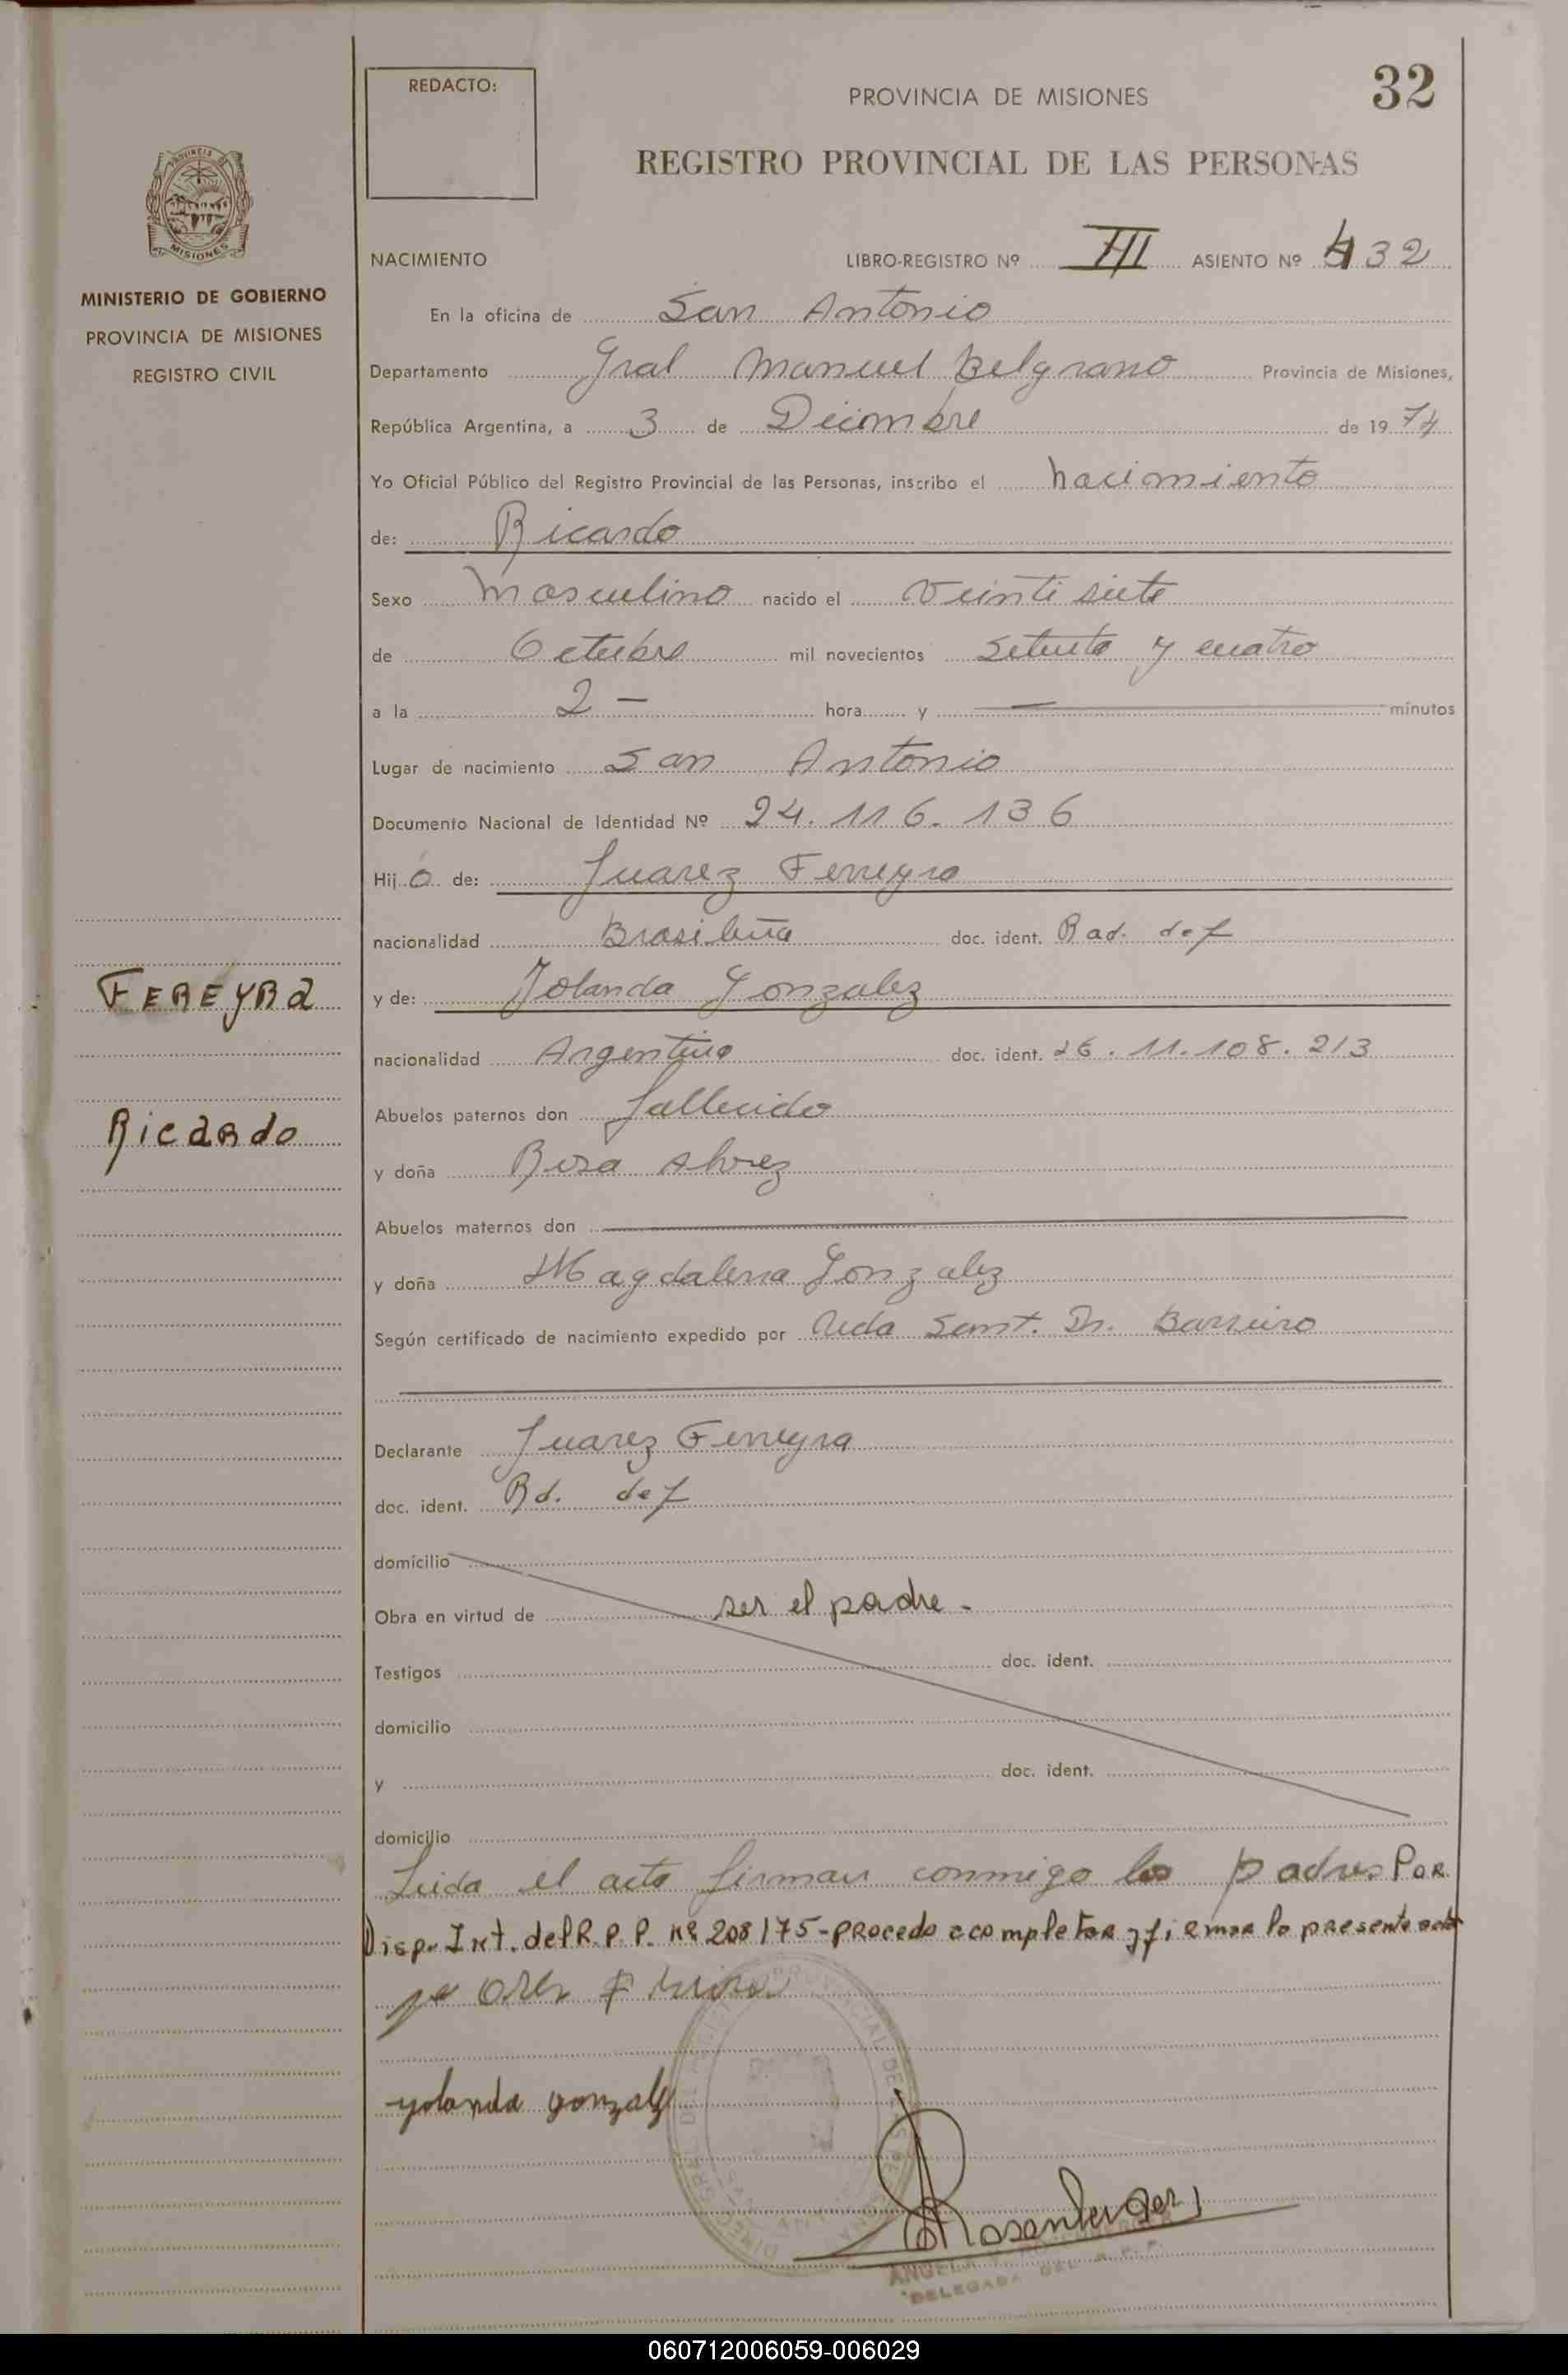 32
REDACTO:
PROVINCIA DE MISIONES
REGISTRO PROVINCIAL DE LAS PERSONAS
PROVINCIA DE
MISIONES
MINISTERIO DE GOBIERNO
PROVINCIA DE MISIONES
REGISTRO CIVIL
FEREYRA
Ricardo
NACIMIENTO LIBRO-REGISTRO Nº III ASIENTO Nº 432
En la oficina de San Antonio
Departamento Gral Manuel Belgrano Provincia de Misiones,
República Argentina, a 3 de Diciembre de 1974
Yo Oficial Público del Registro Provincial de las Personas, inscribo el nacimiento
de: Ricardo
Sexo masculino nacido el veinti siete
de Octubre mil novecientos setenta y cuatro
a la 2 — hora y — minutos
Lugar de nacimiento San Antonio
Documento Nacional de Identidad Nº 24.116.136
Hijo de: Juarez Ferreyra
nacionalidad Brasileña doc. ident. Rad. def
y de: Yolanda Gonzalez
nacionalidad Argentina doc. ident. 11.108.213
Abuelos paternos don fallecido
y doña Rosa
Abuelos maternos don
y doña Magdalena Gonzalez
Según certificado de nacimiento expedido por Dr. Barreiro
Declarante Juarez Ferreyra
doc. ident. Rd. def
domicilio
Obra en virtud de ser el padre -
Testigos doc. ident.
domicilio
y doc. ident.
domicilio
Leida el acta firman conmigo los padres Por
Disp. Int. del R.P.P. nº 208/75-procedo a completar y firmar la presente acta
yolanda gonzalez
Rosenberger
ANGELA
DELEGADA DEL R.P.P.
060712006059-006029